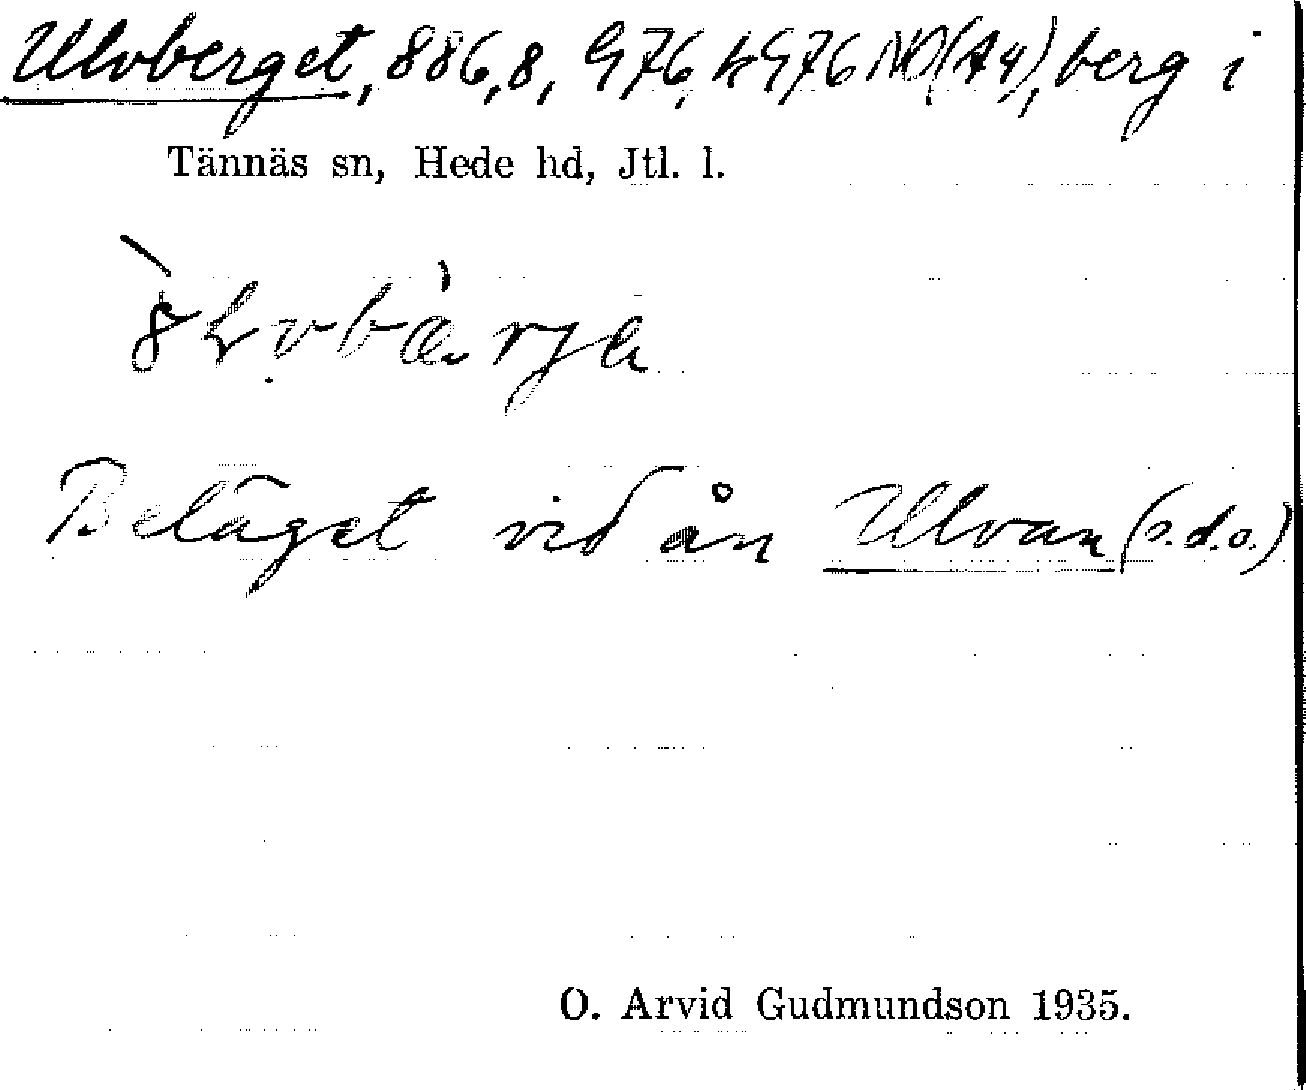 Ulvberget, 886,8, G76, hG76 NO(A4), berg i
Tännäs sn, Hede hd, Jtl. l.
Beläget vid ån Ulvan (s.d.o.)
O. Arvid Gudmundson 1935.